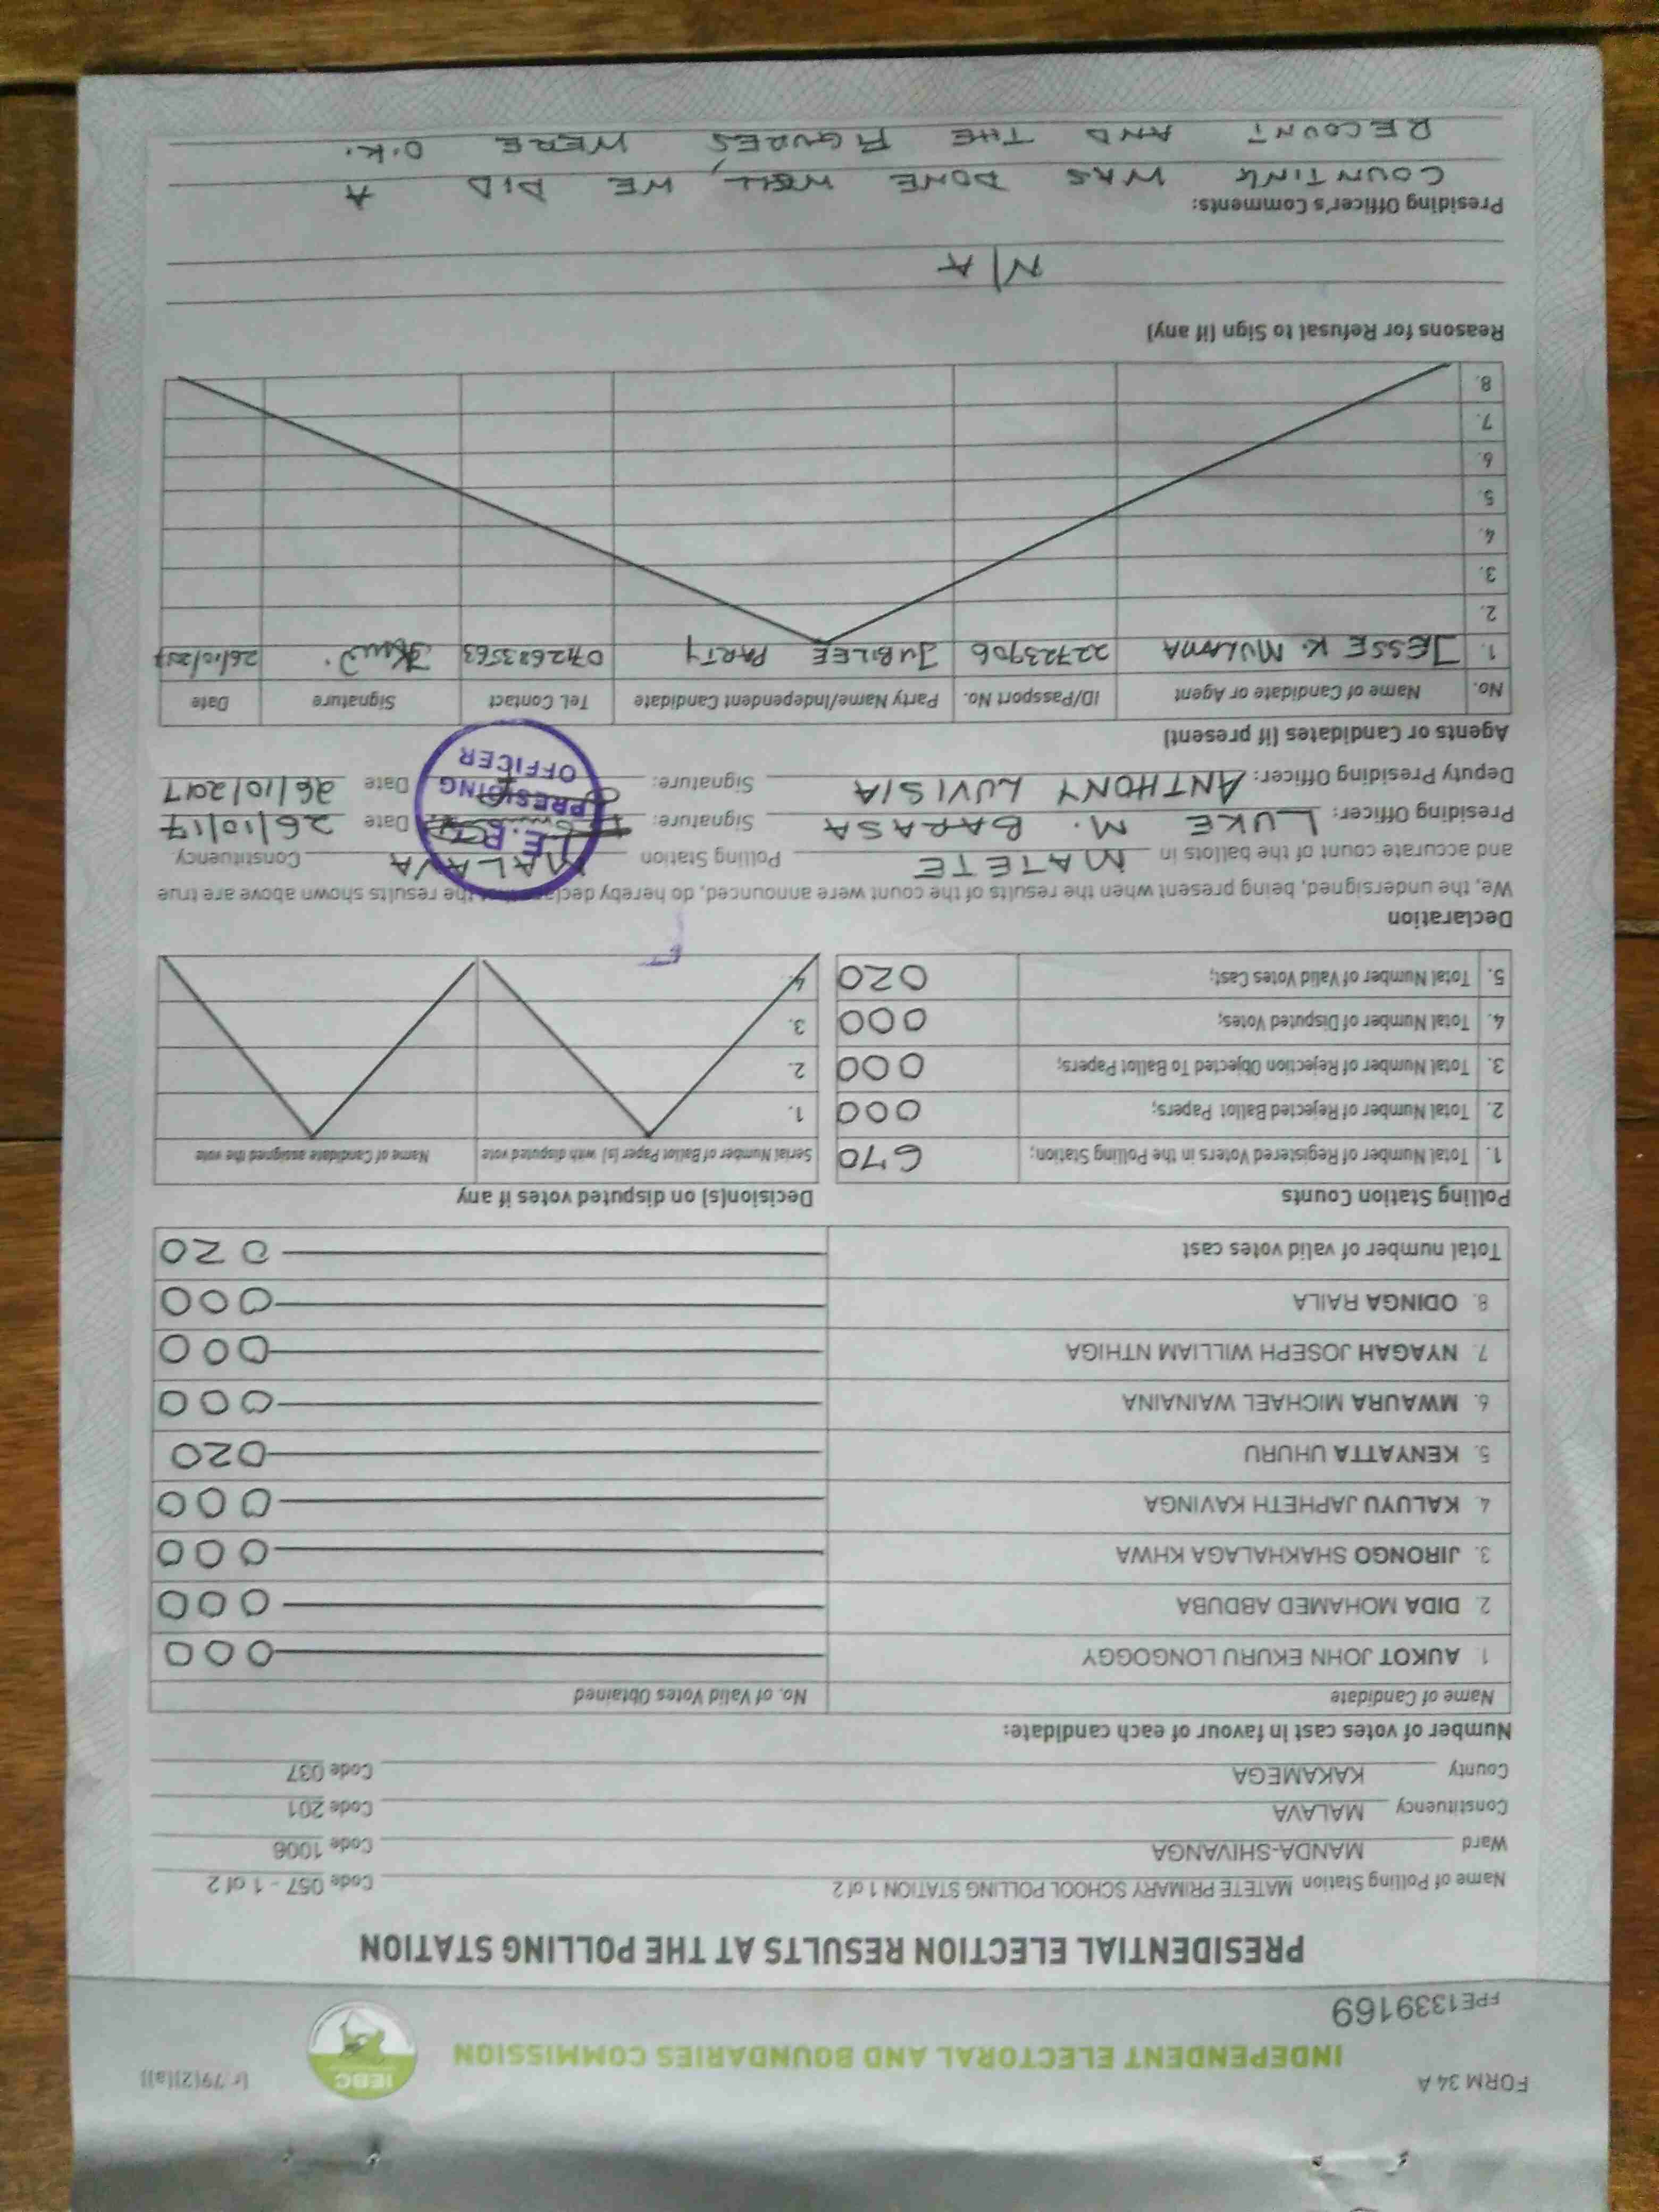 FORM 34 A
[r 79(2)(a)]
IEBC
INDEPENDENT ELECTORAL AND BOUNDARIES COMMISSION
FPE1339169
PRESIDENTIAL ELECTION RESULTS AT THE POLLING STATION
Name of Polling Station MATETE PRIMARY SCHOOL POLLING STATION 1 of 2 Code 057 - 1 of 2
Ward MANDA-SHIVANGA Code 1006
Constituency MALAVA Code 201
County KAKAMEGA Code 037
Number of votes cast in favour of each candidate:
Name of Candidate No. of Valid Votes Obtained
1 AUKOT JOHN EKURU LONGOGGY 000
2. DIDA MOHAMED ABDUBA 000
3. JIRONGO SHAKHALAGA KHWA 000
4 KALUYU JAPHETH KAVINGA 000
5. KENYATTA UHURU 020
6. MWAURA MICHAEL WAINAINA 000
7. NYAGAH JOSEPH WILLIAM NTHIGA 000
8. ODINGA RAILA 000
Total number of valid votes cast 020
Polling Station Counts
Decision(s) on disputed votes if any
1. Total Number of Registered Voters in the Polling Station; 670
2. Total Number of Rejected Ballot Papers; 000
3. Total Number of Rejection Objected To Ballot Papers; 000
4. Total Number of Disputed Votes; 000
5. Total Number of Valid Votes Cast; 020
Serial Number of Ballot Paper (s) with disputed vote Name of Candidate assigned the vote
1.
2.
3.
4.
Declaration
We, the undersigned, being present when the results of the count were announced, do hereby declare that the results shown above are true
and accurate count of the ballots in MATETE Polling Station MALAVA Constituency
Presiding Officer: LUKE M. BARASA Signature: Date 26/10/17
Deputy Presiding Officer: ANTHONY LUVISIA Signature: Date 26/10/2017
PRESIDING
OFFICER
Agents or Candidates (if present)
No. Name of Candidate or Agent ID/Passport No. Party Name/Independent Candidate Tel. Contact Signature Date
1. JESSE K. MULAMA 22723906 JUBILEE PARTY 0712683563 26/10/2017
2.
3.
4.
5.
6.
7.
8.
Reasons for Refusal to Sign (if any)
N/A
Presiding Officer's Comments:
COUNTING WAS DONE WELL, WE DID A
RECOUNT AND THE FIGURES WERE O.K.